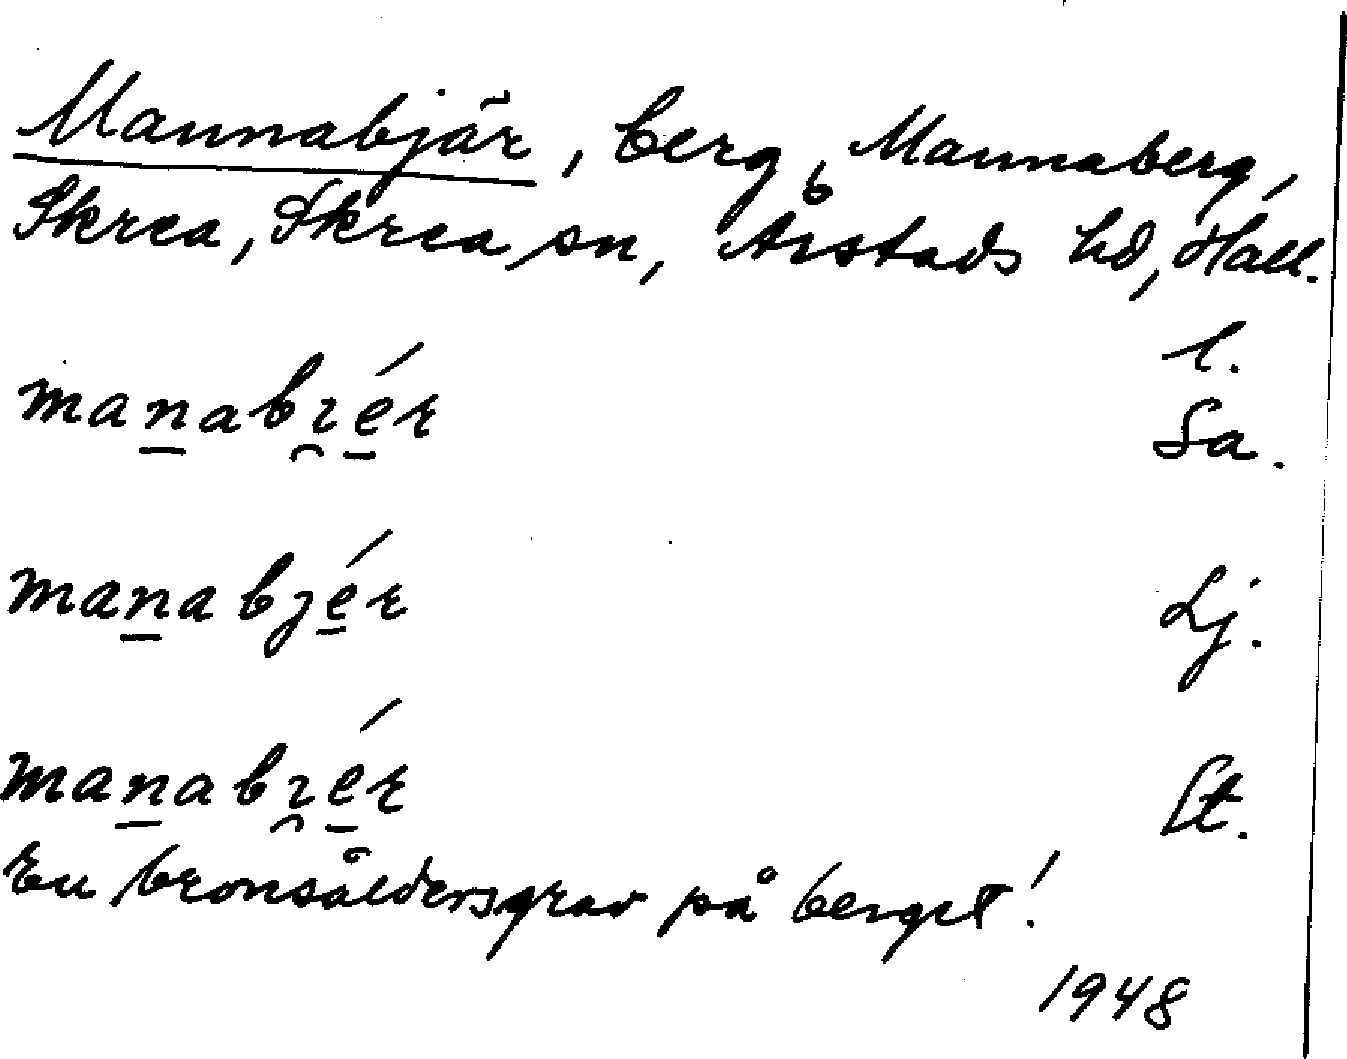 Mannabjär, berg, Mannaberg,
Skrea, Skrea sn, Årstads hd, Hall.
l.
manabɿér Sa.
manabjér Lj.
manabɿér St.
En bronsåldersgrav på berget!
1948